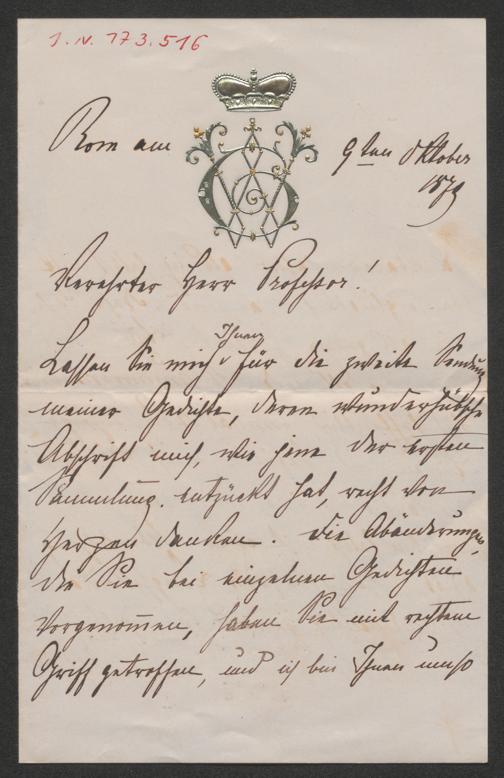 J. N. 173.516
Rom am 9ten Oktober
1879
Verehrter Herr Professor!
Ihnen
Lassen Sie mich für die zweite Sendung
meiner Gedichte, deren wunderhübsche
Abschrift mich, wie jene der ersten
Sammlung entzückt hat, recht von
Herzen danken. Die Abänderungen,
die Sie bei einzelnen Gedichten
vorgenommen, haben Sie mit rechtem
Griff getroffen, und ich bin Ihnen umso